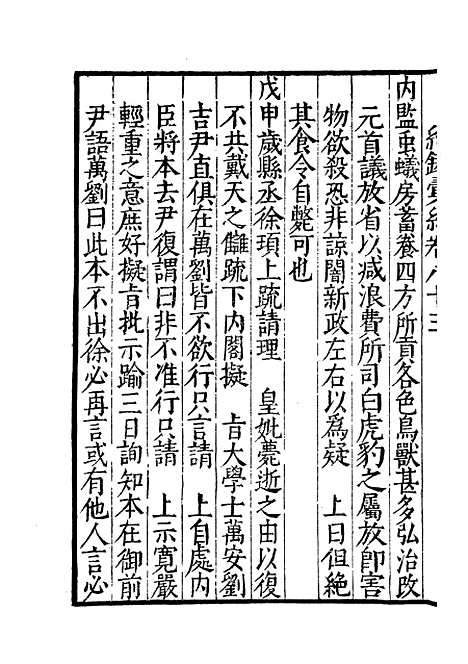 紀錄彙編卷八十三
内監虫蟻房蓄養四方所貢各色鳥獸甚多弘治改
元首議放省以减浪費所司白虎豹之屬放即害
物欲殺恐非諒闇新政左右以爲疑　上曰但絶
其食令自斃可也
戊申歲縣丞徐頊上疏請理　皇妣薨逝之由以復
不共戴天之讎疏下内閣擬　旨大學士萬安劉
吉尹直俱在萬劉皆不欲行只言請　上自處内
臣將本去尹復謂曰非不准行只請　上示寛嚴
輕重之意庶好擬旨批示踰三日詢知本在御前
尹語萬劉曰此本不出徐必再言或有他人言必